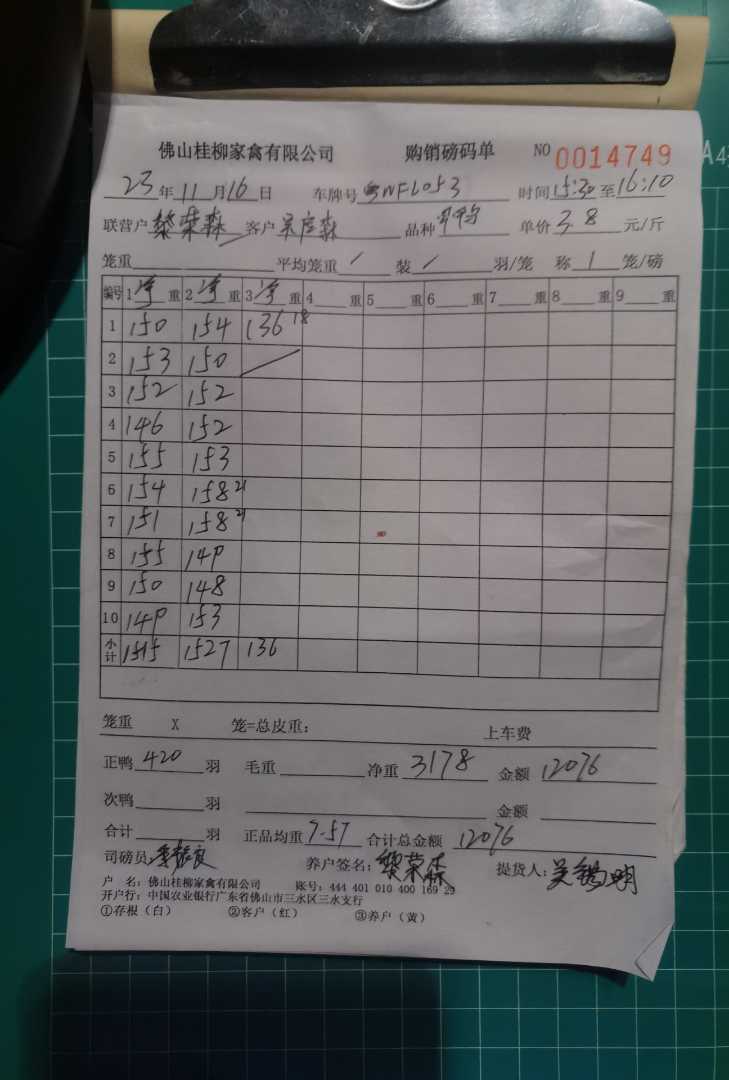 佛山桂柳家禽有限公司 购销磅码单 NO 0014749
23年11月16日 车牌号 WFL053 时间15:30至16:10
联营户 黎荣森 客户 品种 单价 3.8 元/斤
笼重 平均笼重 / 装 / 羽/笼 称 1 笼/磅
编号 1净重 2净重 3净重 4 重 5 重 6 重 7 重 8 重 9 重
1 150 154 136 18
2 153 150
3 152 152
4 146 152
5 155 153
6 154 158 21
7 151 158 21
8 155 149
9 150 148
10 149 153
小计 1515 1527 136
笼重 X 笼=总皮重: 上车费
正鸭 420 羽 毛重 净重 3178 金额 12076
次鸭 羽 金额
合计 羽 正品均重 7.57 合计总金额 12076
司磅员: 养户签名: 黎荣森 提货人: 吴锡明
户 名: 佛山桂柳家禽有限公司 账号: 444 401 010 400 169 29
开户行: 中国农业银行广东省佛山市三水区三水支行
①存根（白） ②客户（红） ③养户（黄）
A4